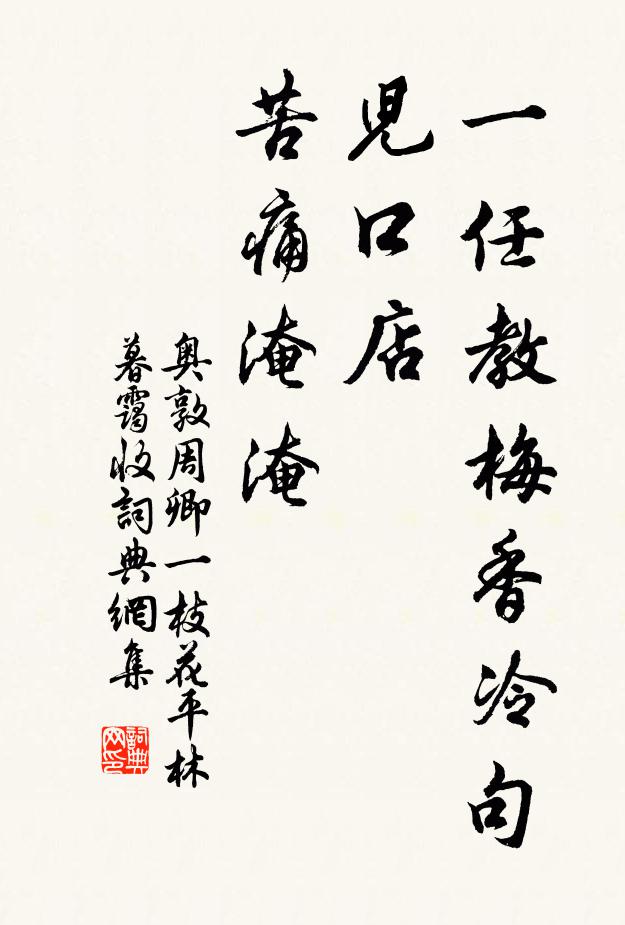 一任教梅香冷句
兒口店
苦痛淹淹
奥敦周卿一枝花平林
暮靄收詞典網集
詞典
网印